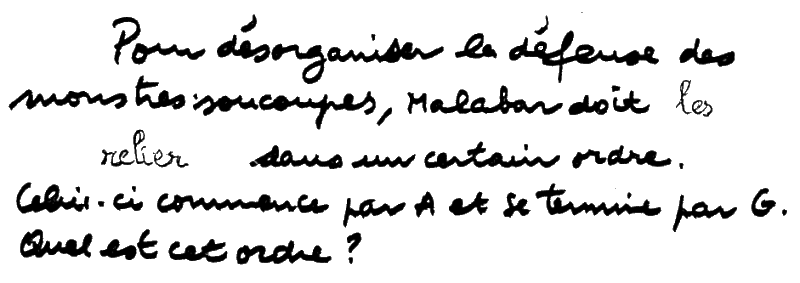 Pour désorganiser la défense des
monstres-soucoupes, Malabar doit les
relier dans un certain ordre.
Celui-ci commence par A et se termine par G.
Quel est cet ordre ?